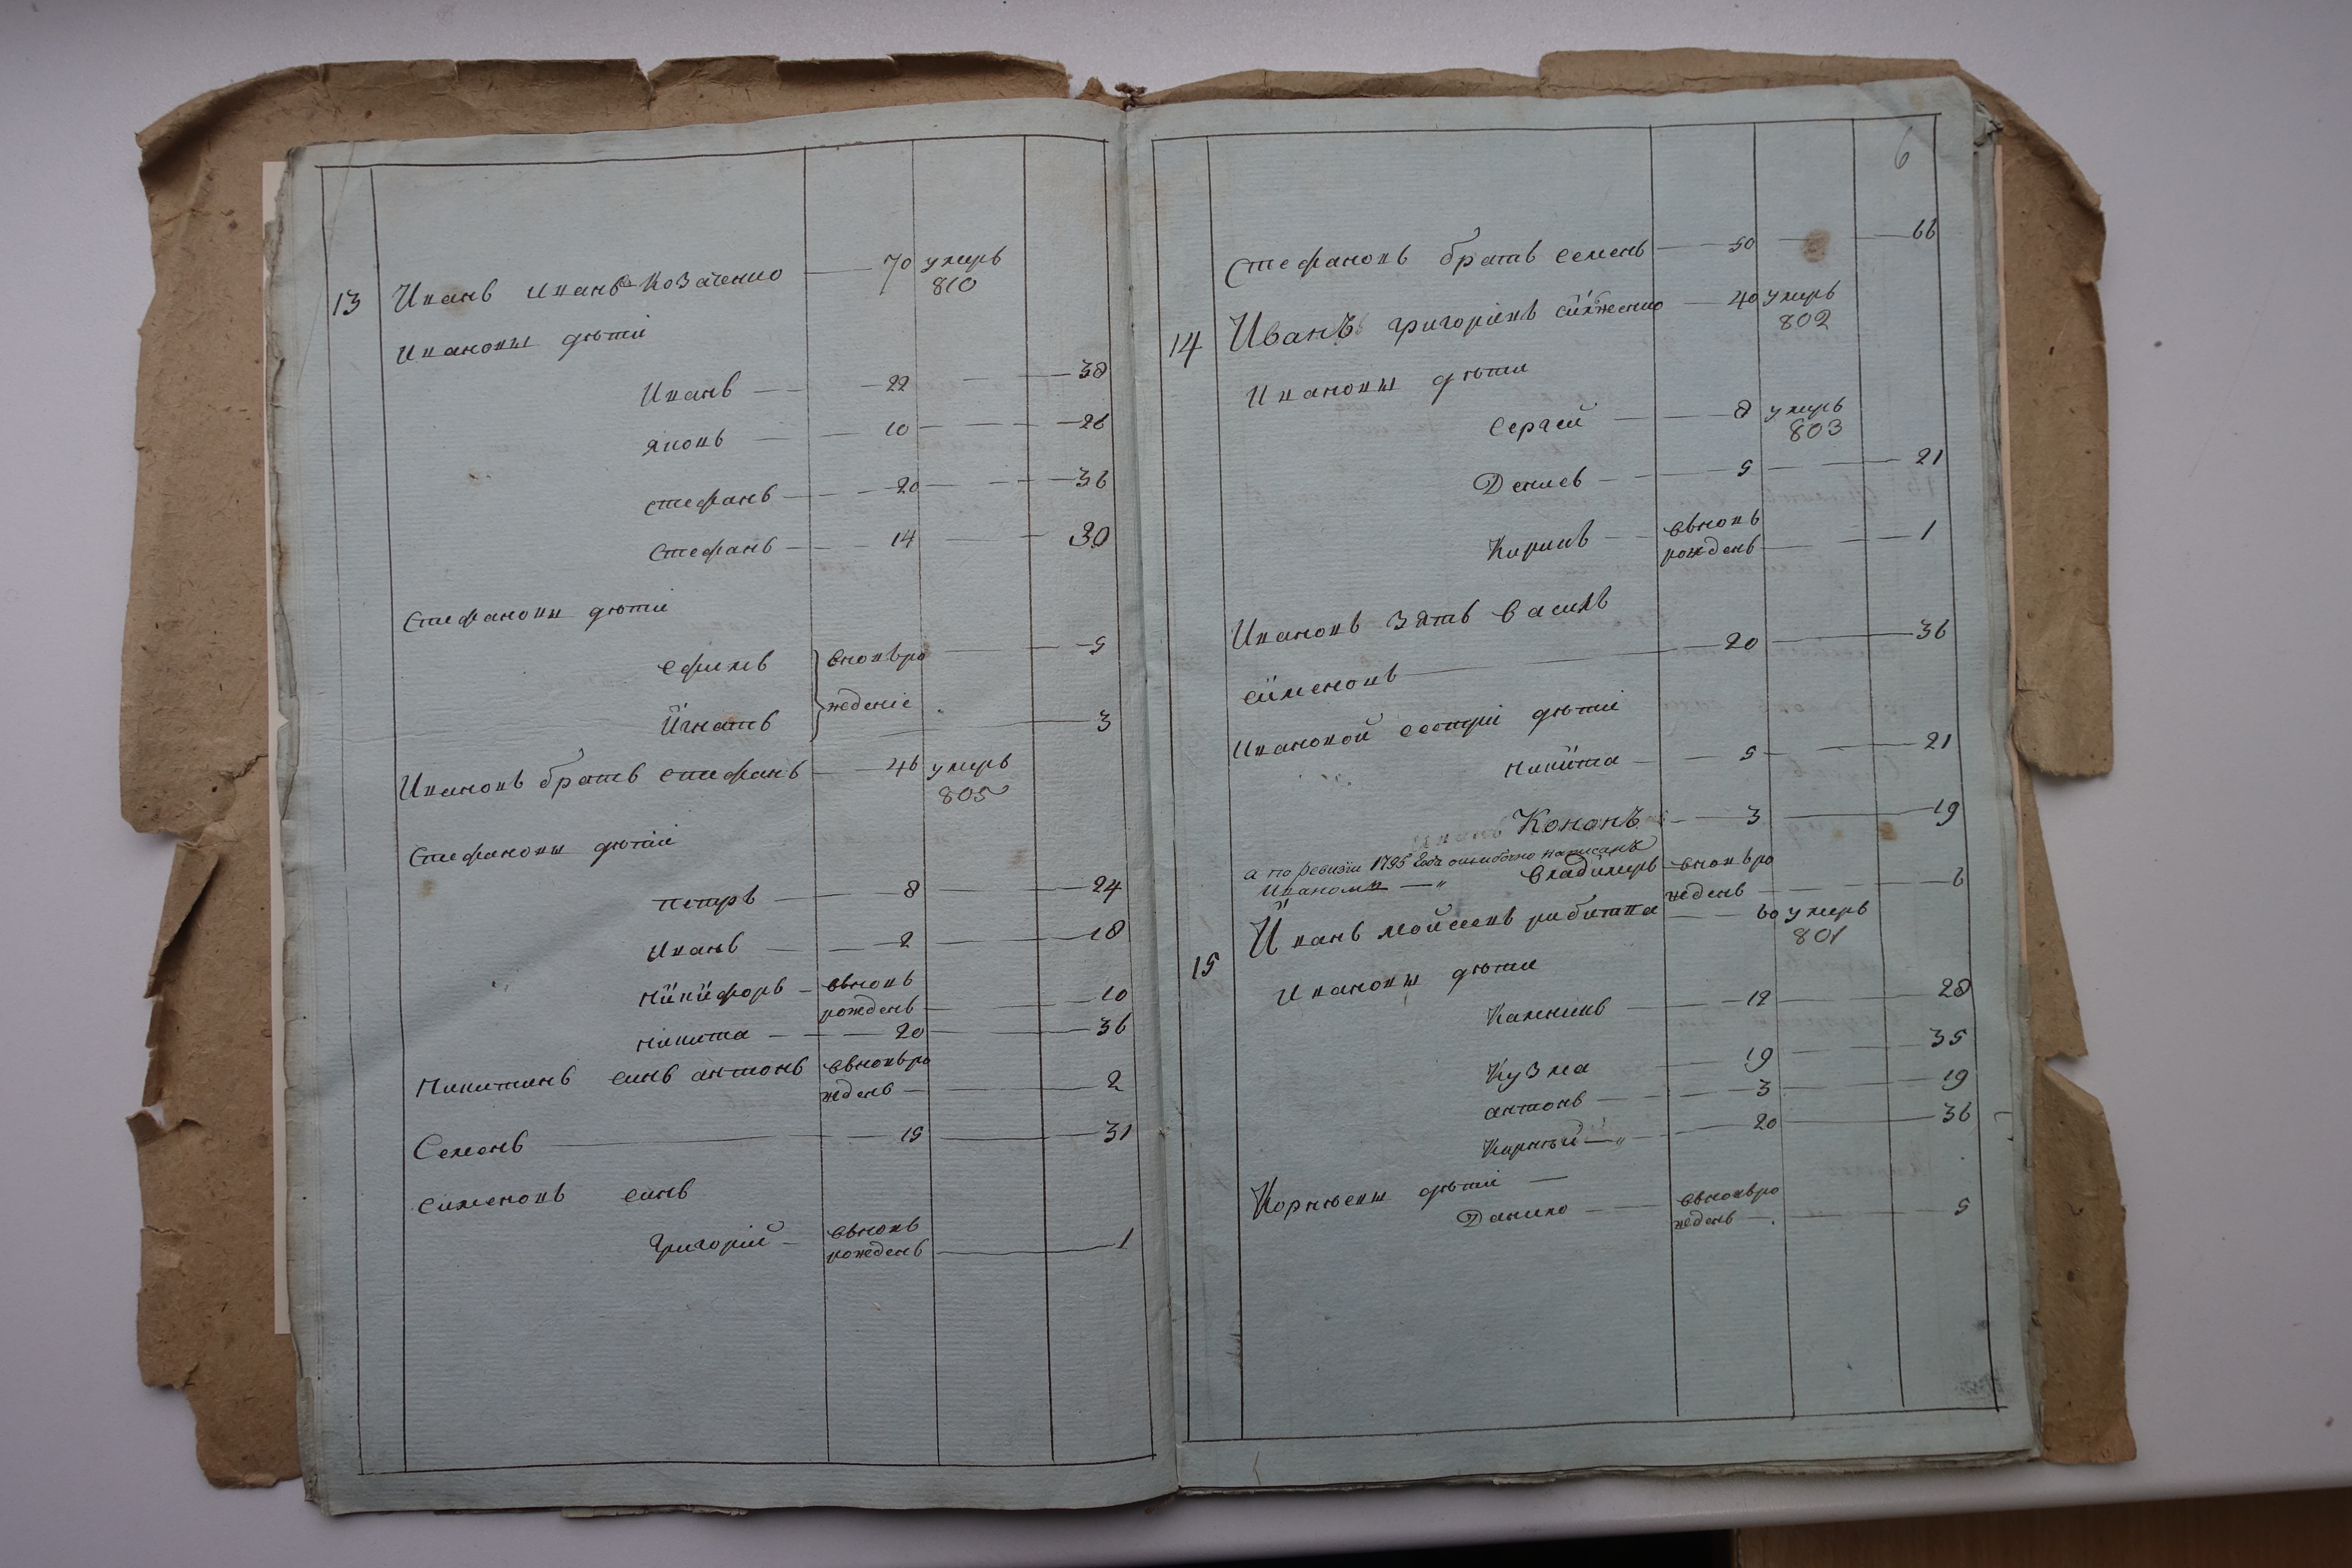 13 Иванъ Ивановъ Козаченко 70 умеръ
810
Ивановы дѣти
Иванъ 22 38
Яковъ 10 26
Стефанъ 20 36
Стефанъ 14 30
Стефановы дѣти
Ефимъ вновъро 5
Игнатъ ждение 3
Ивановъ братъ стефанъ 46 умеръ
805
Стефановы дѣти
Петръ 8 24
Иванъ 2 18
Никифоръ въновъ
рожденъ 10
Никита 20 36
Никитинъ синъ антонъ въновъро
жденъ 2
Семенъ 15 31
Сименовъ синъ
Григорий въновъ
рожденъ 1
6
Стефановъ братъ семенъ 50 66
14 Иванъ Григориевъ 40 умеръ
802
Ивановы дѣти
Сергей 8 умеръ
803
Денисъ 5 21
Кирилъ въновъ
рожденъ 1
Ивановъ зять василь
сименовъ 20 36
Ивановой сестри дѣти
Никита 5 21
Кононъ 3 19
а по ревизии 1795 года ошибочно написанъ
Иваномъ Владимеръ вновъро
жденъ 6
15 Иванъ Мойсеевъ рибитва 60 умеръ
801
Ивановы дѣти
Калникъ 12 28
Кузма 19 35
антонъ 3 19
Карнѣй 20 36
Корнѣевы дѣти
Данило въновъро
жденъ 5